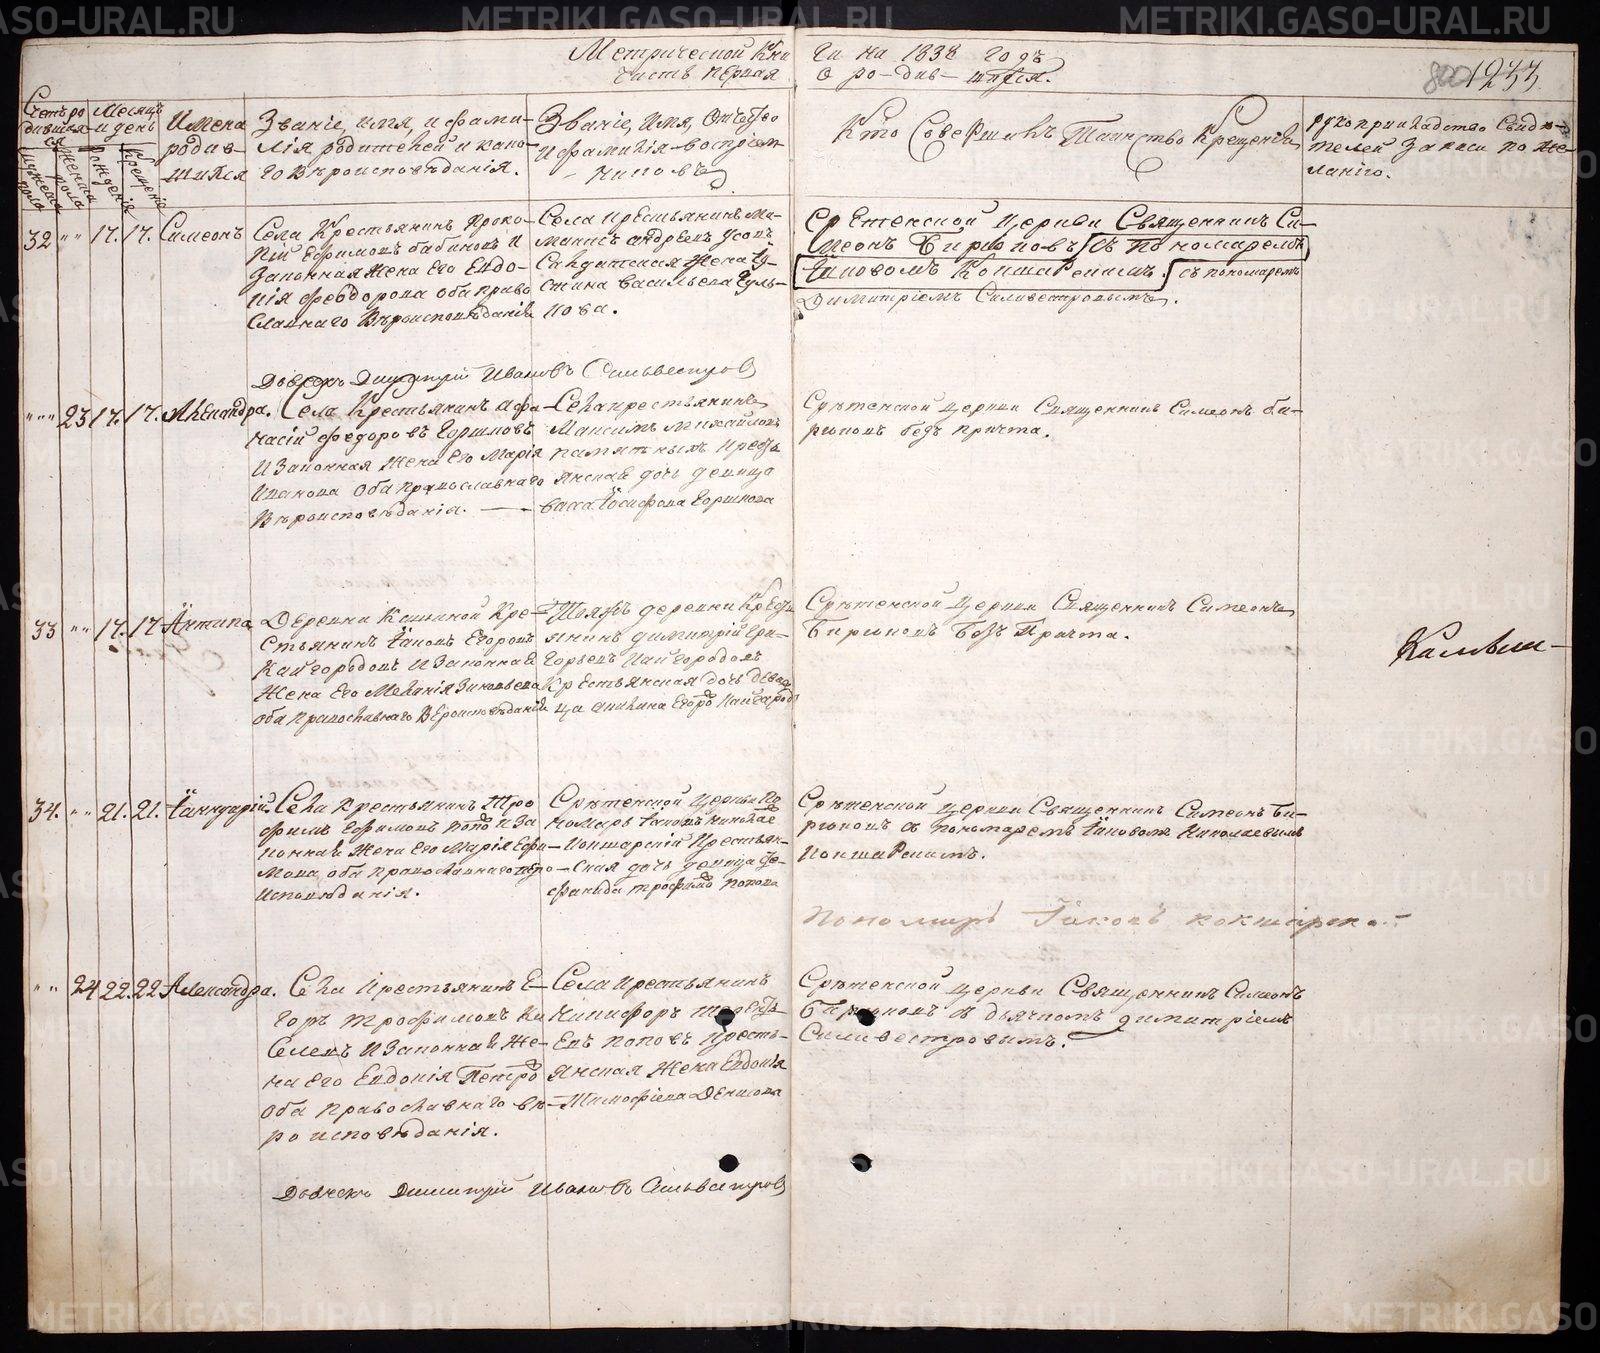 Метрической Кни
ги на 1838 годъ
часть первая
о ро-див-шихся.
1233
Счетъ ро
дившихся
Мужеска
пола
Женска
пола
Месяцъ
и день
Рожденія
Крещенія
Имена
родив-
шихся
Званіе, имя, и фами-
лія родителей и како-
го вѣроисповѣданія.
Званіе, Имя, Отчество
и фамилія воспріем-
никовъ
Кто Совершилъ Таинство Крещенія
рукоприкладство Свидѣ-
телей Записи по же-
ланію.
32 " " 17. 17. Симеонъ
Села Крестьянинъ Проко-
пій Ефимовъ бабиновъ и
Законная Жена Его Евдо-
кія Феодорова оба право
Славнаго Вѣроисповѣданія
Села Крестьянинъ
андреевъ
Салдатская Жена
Васильева
нова.
Срѣтенской Церкви Священникъ Си-
меонъ Бирюковъ съ пономаремъ
Іаковомъ Кокшарскимъ. съ пономаремъ
Димитріемъ Силивестровымъ.
Дьячекъ Димитрій Ивановъ Сильвестровъ
" " " 23 17. 17. Александра.
Села Крестьянинъ Афа-
насій Федоровъ Горшковъ
И Законная Жена Его Марія
Иванова Оба православнаго
Вѣроисповѣданія.
Села крестьянинъ
Максимъ Михайловъ
янская дочь девица
Васса Іосифова Горшкова
Срѣтенской Церкви Священникъ Симеонъ би-
рюковъ безъ причта.
33 " " 17. 17 Антипа
Деревни Кре-
стьянинъ Іаковъ Егоровъ
Кайгородовъ и Законная
Жена Его Меланія Зиновьева
оба православнаго вероисповѣданія
Тояжъ деревни Кресть
янинъ димитрій Гри-
горьевъ Кайгородовъ
Крестьянская дочь Деви
ца Акилина Егоро Кайгород
Срѣтенской Церкви Священникъ Симеонъ
Бирюковъ Безъ Причта.
34. " " 21. 21. Іаннуарій
Села Крестьянинъ Тро
фимъ Ефимовъ попо и За
конная Жена Его Марія Ефи-
мова оба православнаго веро-
исповѣданія.
Срѣтенской Церкви По
номарь Іаковъ Николае
Кокшарскій Крестьян-
ская дочь девица
трофимо попова
Срѣтенской Церкви Священникъ Симеонъ Би-
рюковъ съ пономаремъ Іаковомъ Николаевымъ
Кокшарскимъ.
Пономарь Іаковъ кокшарско.
" " 24 22. 22 Александра.
Села Крестьянинъ Е-
горъ Трофимовъ Ки
селевъ и Законная Же-
на Его Евдокія Петро
оба православнаго вѣ-
роисповѣданія.
Села крестьянинъ
Никифоръ Терентъ
евъ поповъ Кресть-
янская Жена Евдокія
Тимофіева Денисова
Срѣтенской Церкви Священникъ Симеонъ
Бирюковъ съ дьячкомъ димитріемъ
Силивестровымъ.
Дьячекъ Димитрій Ивановъ Сильвестровъ
METRIKI.GASO-URAL.RU